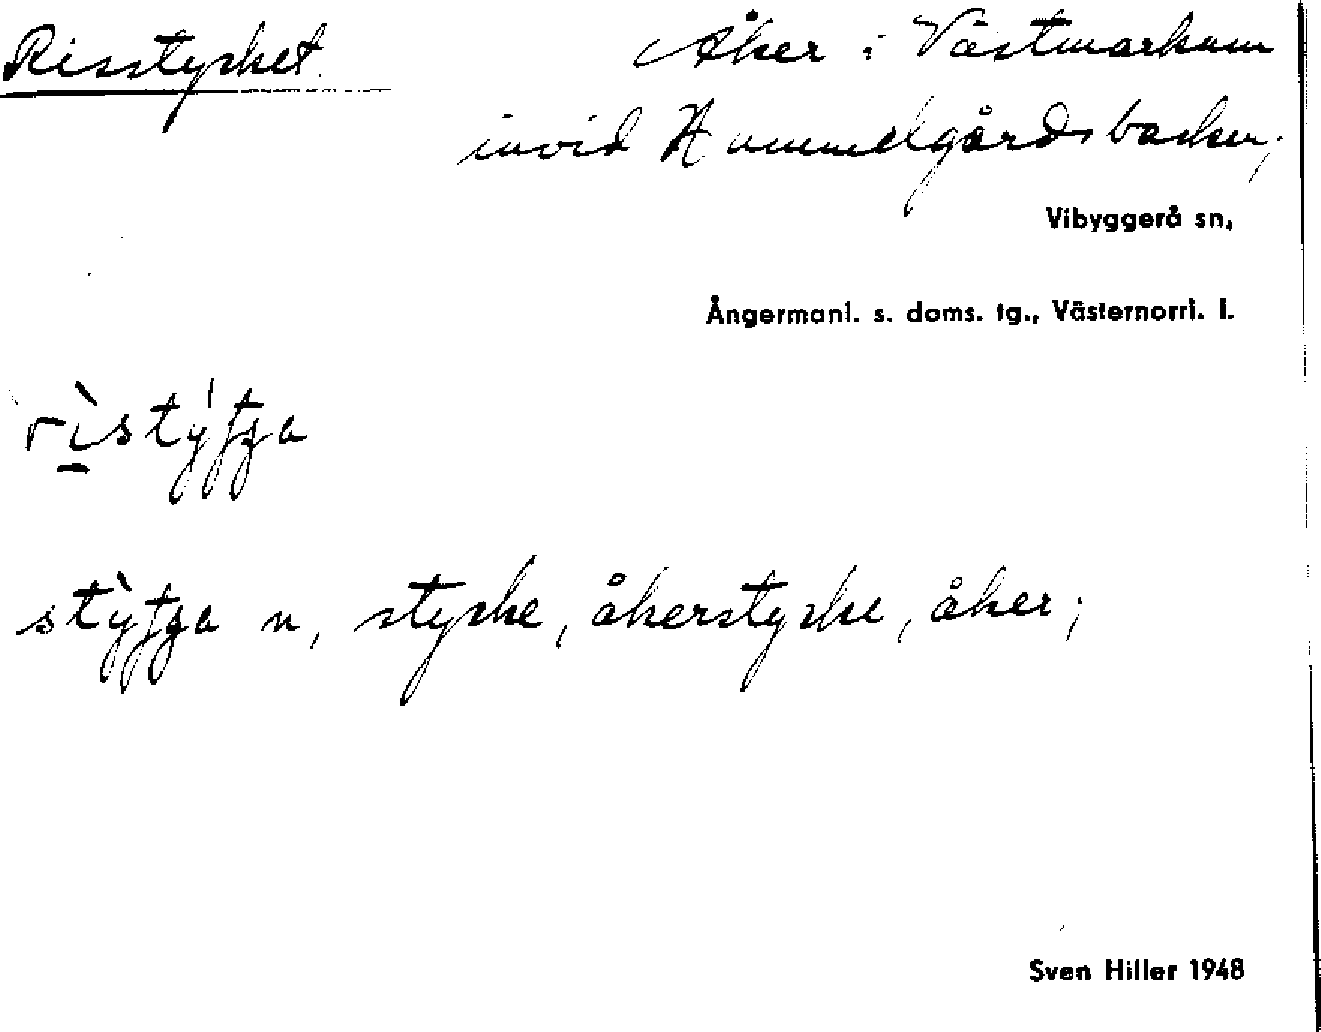 Risstycket
Åker i Västmarkum
invid Hummelgårdsbacken;
Vibyggerå sn,
Ångermanl. s. doms. tg., Västernorrl. l.
n, stycke, åkerstycke, åker;
Sven Hiller 1948